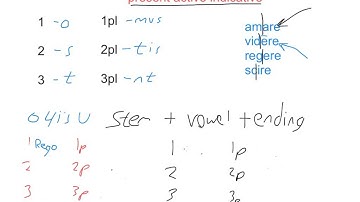 present active indicative
1 -o 1pl -mus amare
2 -s 2pl -tis videre
3 -t 3pl -nt regere
scire
o 4 is u stem + vowel + ending
1 Rego 1p 1 1p
2 2p 2 2p
3 3p 3 3p